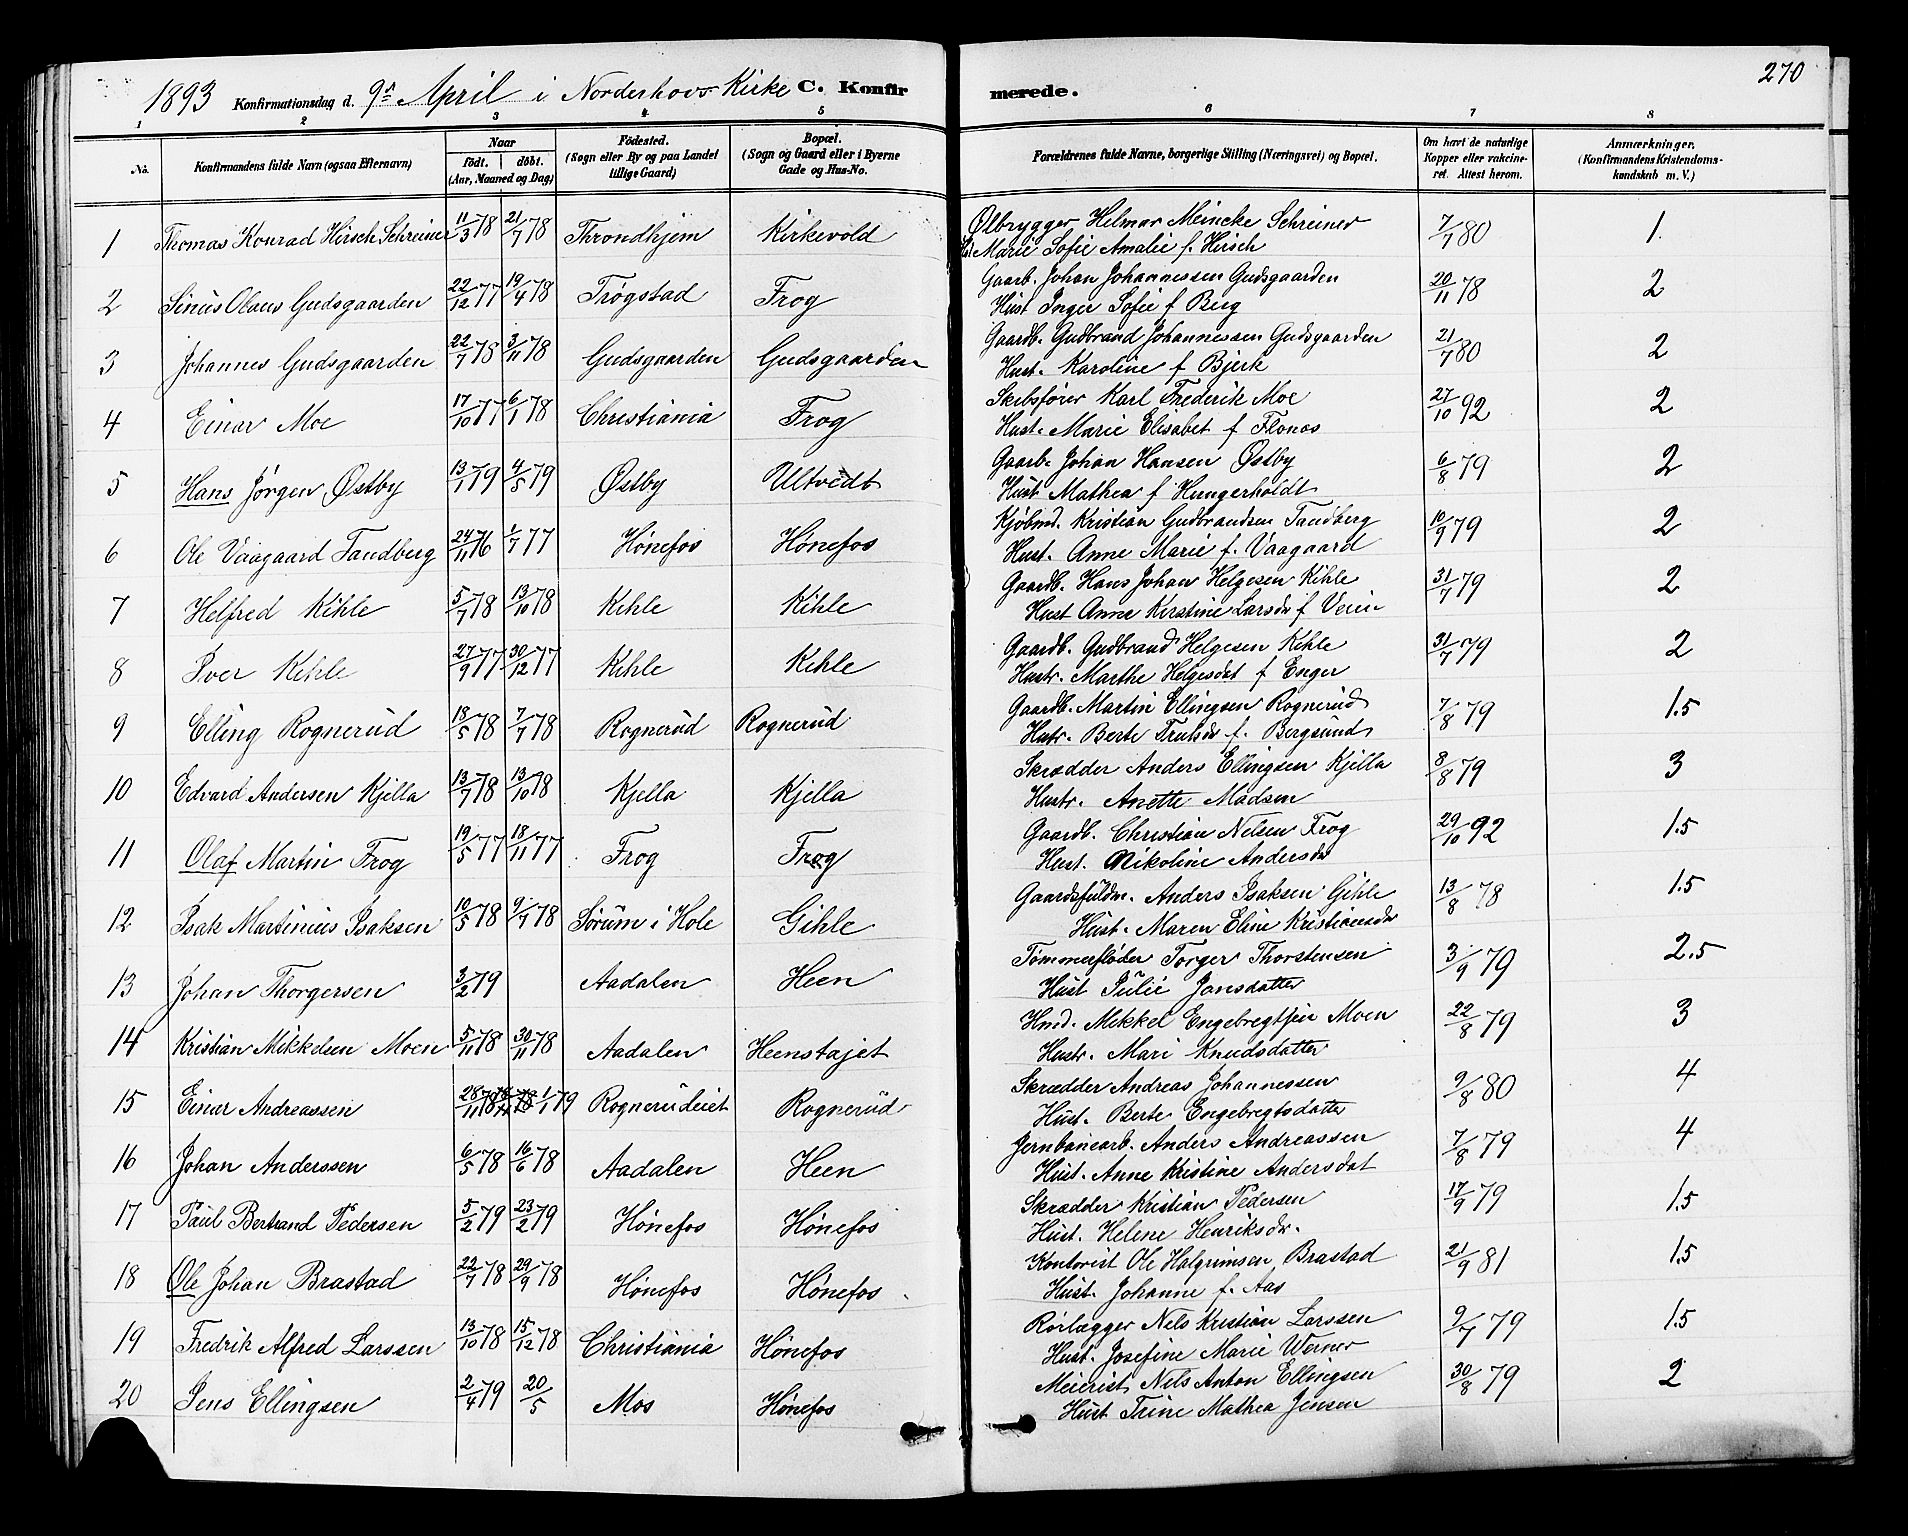 270
1893 Konfirmationsdag d. 9de April i Norderhovs Kirke C. Konfirmerede.
1 2 3 4 5 6 7 8
No. Konfirmandens fulde Navn (ogsaa Efternavn) Naar født. døbt. (Aar, Maaned og Dag) Fødested. (Sogn eller By og paa Landet tillige Gaard) Bopæl. (Sogn og Gaard eller i Byerne Gade og Hus-No. Forældrenes fulde Navne, borgerlige Stilling (Næringsvei) og Bopæl. Om havt de naturlige Kopper eller vakcineret. Attest herom. Anmærkninger. (Konfirmandens Kristendomskundskab m. V.)
1 Thomas Konrad Hirsch Schreiner 11/3 78 21/7 78 Throndhjem Kirkevold Ølbrygger Helmar Meincke Schreiner 7/7 80 1.
Hst Marie Sofie Amalie f. Hirsch
2 Sinus Olaus Gudsgaarden 22/12 77 19/4 78 Trøgstad Frog Gaarb. Johan Johannessen Gudsgaarden 20/11 78 2
Hust Inger Sofie f Berg
3 Johannes Gudsgaarden 22/7 78 3/11 78 Gudsgaarden Gudsgaarden Gaardb. Gudbrand Johannessen Gudsgaarden 21/7 80 2
Hust. Karoline f Bjerk
4 Einar Moe 17/10 77 6/1 78 Christiania Frog Skibsfører Karl Frederik Moe 27/10 92 2
Hust. Marie Elisabet f Flonos
5 Hans Jørgen Østby 13/1 79 4/5 79 Østby Ultvedt Gaarb. Johan Hansen Østby 6/8 79 2
Hust Mathea f Hungerholdt
6 Ole Vaagaard Tandberg 24/11 76 1/7 77 Hønefos Hønefos Kjøbmd. Kristian Gudbrandsen Tandberg 10/9 79 2
Hust. Anne Marie f. Vaagaard
7 Helfred Kihle 5/7 78 13/10 78 Kihle Kihle Gaardb. Hans Johan Helgesen Kihle 31/7 79 2
Hust Anne Kirstine Larsdr f Vein
8 Iver Kihle 27/9 77 30/12 77 Kihle Kihle Gaardb. Gudbrand Helgesen Kihle 31/7 79 2
Hustr. Marthe Helgesdat f Enger
9 Elling Rognerud 18/5 78 7/7 78 Rognerud Rognerud Gaardb. Martin Ellingsen Rognerud 7/8 79 1.5
Hustr. Berte Trulsdr f. Bergsund
10 Edvard Andersen Kjella 13/7 78 13/10 78 Kjella Kjella Skrædder Anders Ellingsen Kjella 8/8 79 3
Hustr. Anette Madsen
11 Olaf Martin Frog 19/5 77 18/11 77 Frog Frog Gaardb. Christian Nelsen Frog 29/10 92 1.5
Hust. Nikoline Andersdr
12 Isak Martinius Isaksen 10/5 78 9/7 78 Sørum i Hole Gihle Gaardsfuldm. Anders Isaksen Gihle 13/8 78 1.5
Hust. Maren Eline Kristiansdr
13 Johan Thorgersen 3/2 79 Aadalen Heen Tømmerfløder Torger Thorstensen 3/9 79 2.5
Hust Julie Jonsdatter
14 Kristian Mikkelsen Moen 5/11 78 30/11 78 Aadalen Heenstajet Hmd. Mikkel Engebregtsen Moen 22/8 79 3
Hustr. Mari Knudsdatter
15 Einar Andreassen 28/11 78 1/1 79 Rognerudeiet Rognerud Skrædder Andreas Johannessen 9/8 80 4
Hust. Berte Engebregtsdatter
16 Johan Anderssen 6/5 78 16/6 78 Aadalen Heen Jernbanearb. Anders Andreassen 7/8 79 4
Hust. Anne Kristine Andersdat
17 Paul Bertrand Pedersen 5/2 79 23/2 79 Hønefos Hønefos Skrædder Kristian Pedersen 17/9 79 1.5
Hust. Helene Henriksdr.
18 Ole Johan Brastad 22/7 78 29/9 78 Hønefos Hønefos Kontorist Ole Halgrimsen Brastad 21/9 81 1.5
Hust. Johanne f. Aas
19 Fredrik Alfred Larssen 13/10 78 15/12 78 Christiania Hønefos Rørlægger Nels Kristian Larssen 9/7 79 1.5
Hust. Josefine Marie Werner
20 Jens Ellingsen 2/4 79 20/5 Mos Hønefos Meierist Nels Anton Ellingsen 30/8 79 2
Hust Trine Mathea Jensen